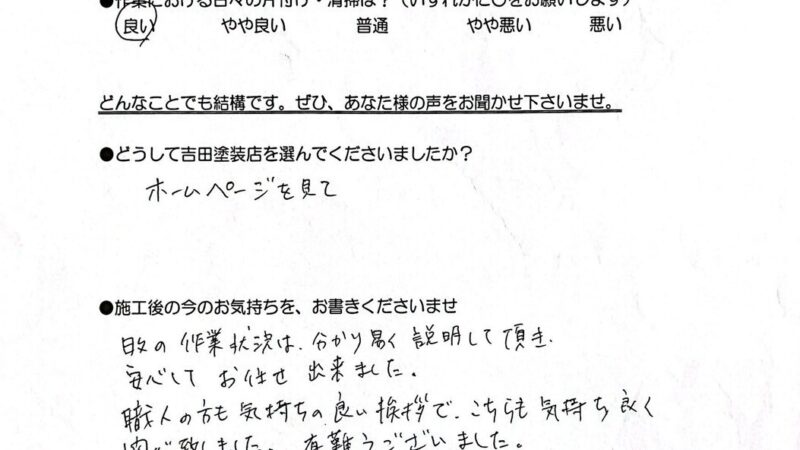 ●作業における日々の片付け・清掃は？（いずれかに〇をお願いします）
良い やや良い 普通 やや悪い 悪い
どんなことでも結構です。ぜひ、あなた様の声をお聞かせ下さいませ。
●どうして吉田塗装店を選んでくださいましたか？
ホームページを見て
●施工後の今のお気持ちを、お書きくださいませ
日々の作業状況は、分かり易く説明して頂き、
安心してお任せ出来ました。
職人の方も気持ちの良い挨拶で、こちらも気持ち良く
致しました。有難うございました。